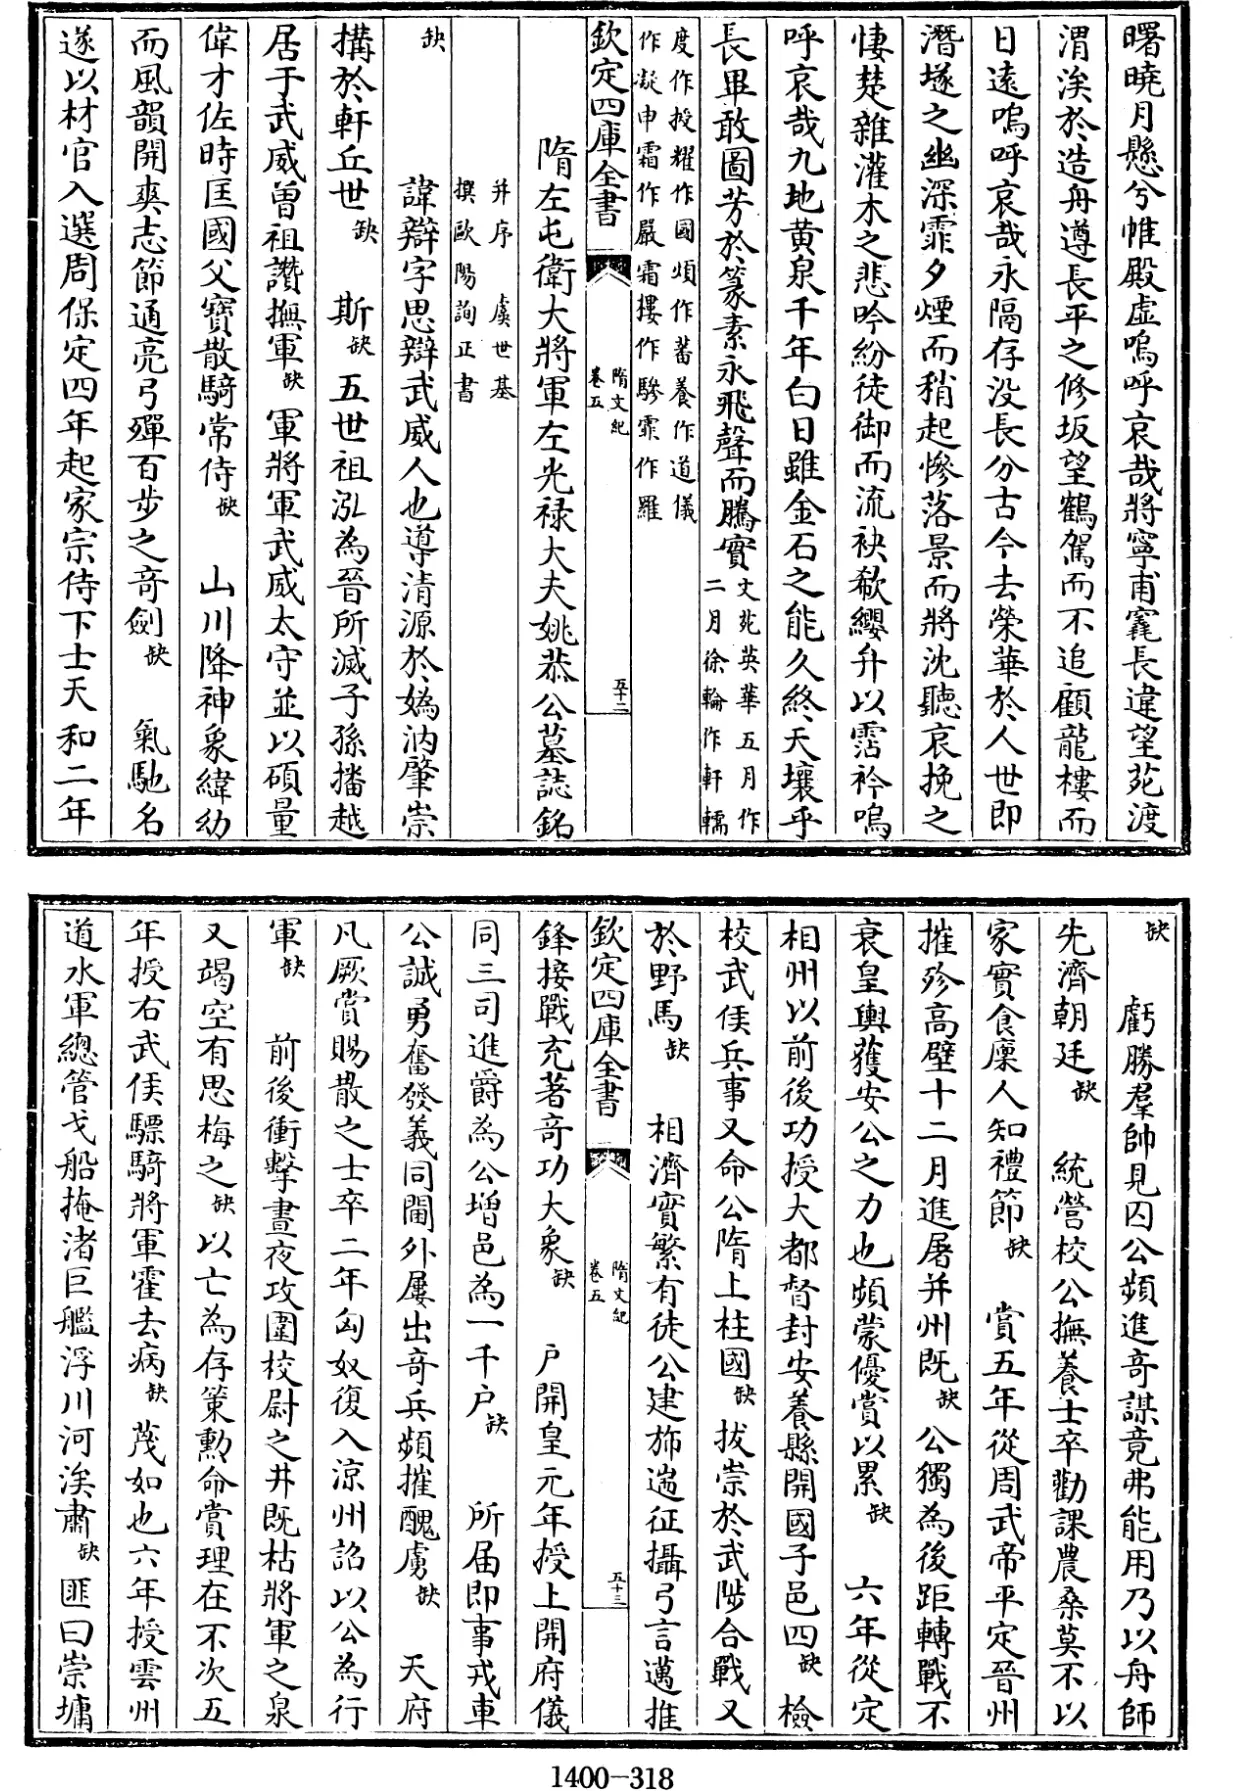 曙曉月懸兮帷殿虛嗚呼哀哉將寧甫窕長違望苑渡
渭涘於造舟遵長平之修坂望鶴駕而不追顧龍樓而
日遠嗚呼哀哉永隔存没長分古今去榮華於人世即
潛墜之幽深霏夕煙而稍起慘落景而將沈聽哀挽之
悽楚雜灌木之悲吟紛徒御而流袂欷纓弁以霑衿嗚
呼哀哉九地黃泉千年白日雖金石之能久終天壤乎
長畢敢圖芳於篆素永飛聲而騰實文苑英華五月作
二月徐輪作軒轜
度作授耀作國頌作蓄養作道儀
作凝申霜作嚴霜摟作驂霏作羅
欽定四庫全書
隋文紀
卷五
五十二
隋左屯衛大將軍左光禄大夫姚恭公墓誌銘
并序 虞世基
撰歐陽詢正書
諱辯字思辯武威人也導清源於媯汭肇崇
缺
構於軒丘世缺 斯缺 五世祖泓為晉所滅子孫播越
居于武威曾祖讚撫軍缺 軍將軍武威太守並以碩量
偉才佐時匡國父寶散騎常侍缺 山川降神象緯幼
而風韻開爽志節通亮弓殫百步之奇劍缺 氣馳名
遂以材官入選周保定四年起家宗侍下士天和二年
缺 虧勝羣帥見囚公頻進奇謀竟弗能用乃以舟師
先濟朝廷缺 統營校公撫養士卒勸課農桑莫不以
家實食廩人知禮節缺 賞五年從周武帝平定晉州
摧殄高壁十二月進屠并州既缺 公獨為後距轉戰不
衰皇輿獲安公之力也頻蒙優賞以累缺 六年從定
相州以前後功授大都督封安養縣開國子邑四缺 檢
校武侯兵事又命公隋上柱國缺 拔崇於武陟合戰又
於野馬缺 相濟實繁有徒公建斾遄征攝弓言邁推
欽定四庫全書
隋文記
卷五
五十三
鋒接戰克著奇功大象缺 戶開皇元年授上開府儀
同三司進爵為公增邑為一千戶缺 所届即事戎車
公誠勇奮發義同閫外屢出奇兵頻摧醜虜缺 天府
凡厥賞賜散之士卒二年匈奴復入涼州詔以公為行
軍缺 前後衝擊晝夜攻圍校尉之井既枯將軍之泉
又竭空有思梅之缺以亡為存策勳命賞理在不次五
年授右武侯驃騎將軍霍去病缺茂如也六年授雲州
道水軍總管弋船掩渚巨艦浮川河涘肅缺 匪曰崇墉
1400-318